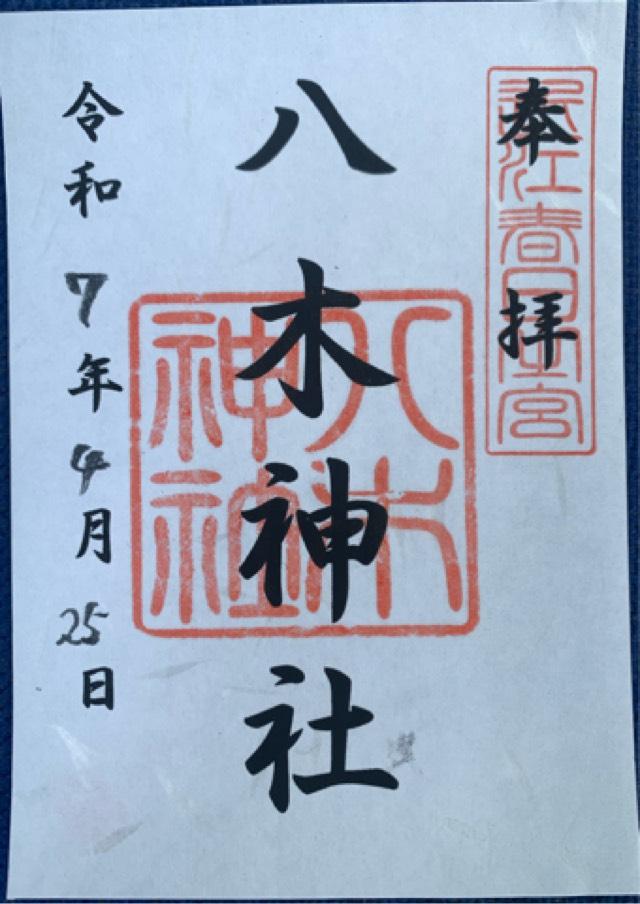 奉拝
近江春日宮
八木神社
八木神社
令和7年4月25日